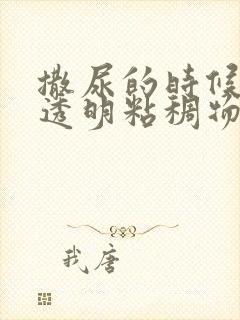 撒尿的时候
透明粘稠物
我唐